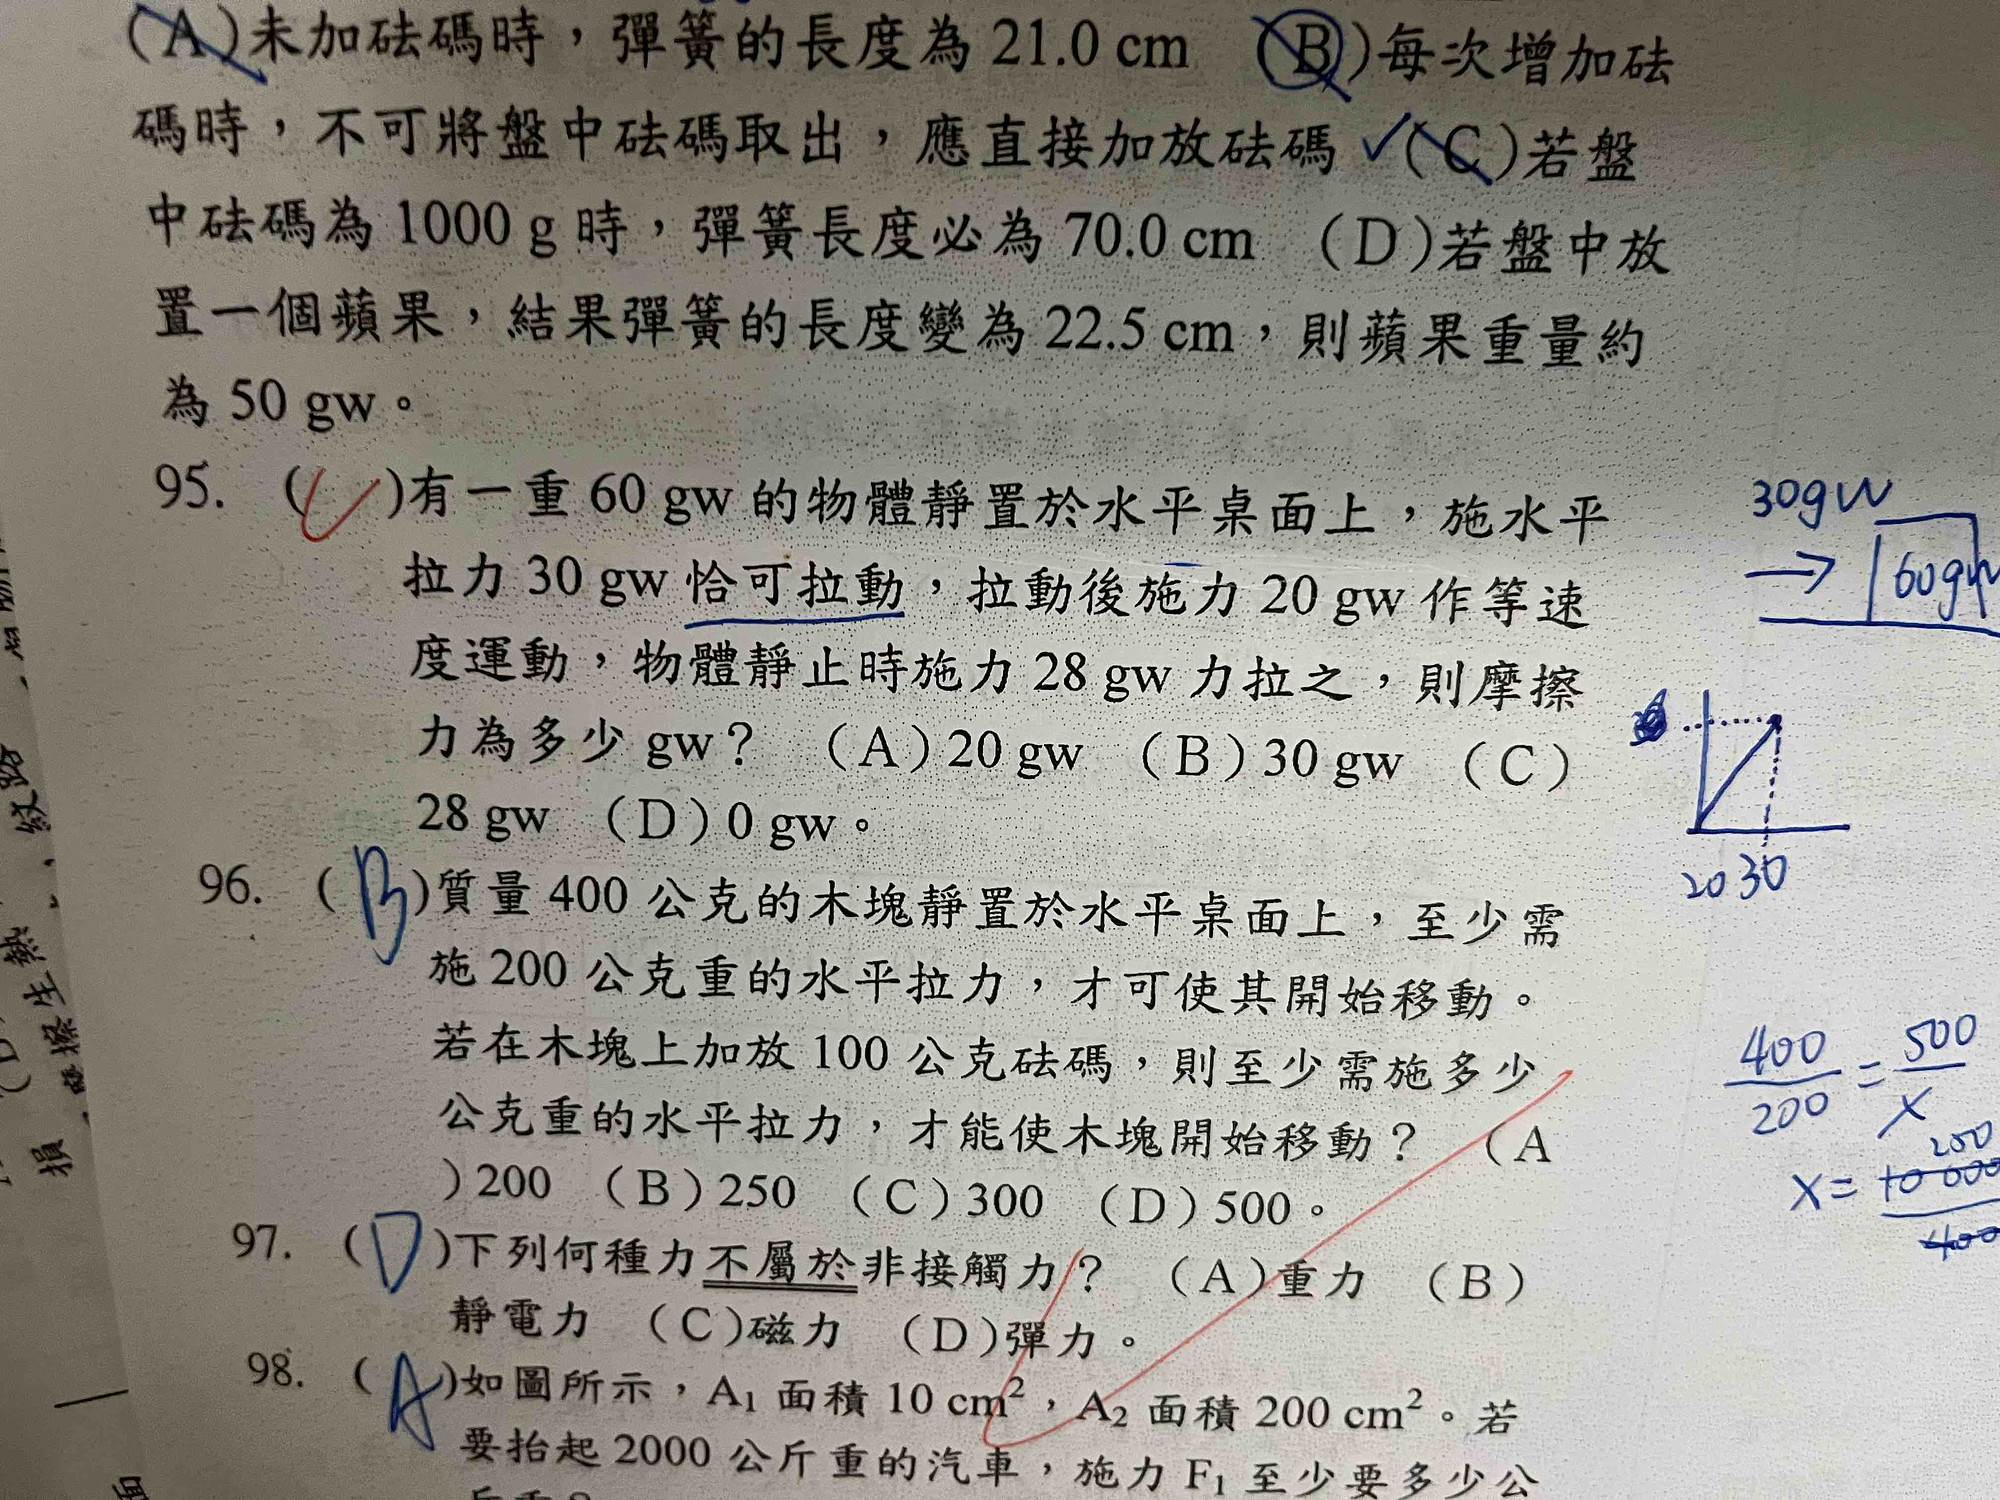 (A)未加砝碼時，彈簧的長度為 21.0 cm (B)每次增加砝
碼時，不可將盤中砝碼取出，應直接加放砝碼 ✓(C)若盤
中砝碼為 1000 g 時，彈簧長度必為 70.0 cm (D)若盤中放
置一個蘋果，結果彈簧的長度變為 22.5 cm，則蘋果重量約
為 50 gw。
95. (C)有一重 60 gw 的物體靜置於水平桌面上，施水平
拉力 30 gw 恰可拉動，拉動後施力 20 gw 作等速
度運動，物體靜止時施力 28 gw 力拉之，則摩擦
力為多少 gw？ (A)20 gw (B)30 gw (C)
28 gw (D)0 gw。
30gw
60gw
20 30
96. (B)質量 400 公克的木塊靜置於水平桌面上，至少需
施 200 公克重的水平拉力，才可使其開始移動。
若在木塊上加放 100 公克砝碼，則至少需施多少
公克重的水平拉力，才能使木塊開始移動？ (A
)200 (B)250 (C)300 (D)500。
400/200 = 500/x
97. (D)下列何種力不屬於非接觸力？ (A)重力 (B)
靜電力 (C)磁力 (D)彈力。
98. (A)如圖所示，A₁ 面積 10 cm²，A₂ 面積 200 cm²。若
要抬起 2000 公斤重的汽車，施力 F₁ 至少要多少公